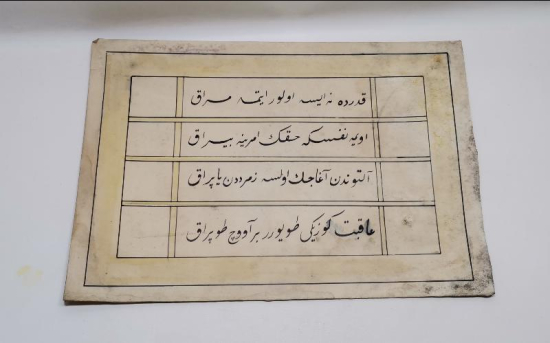 قدرده نه ایسه اولور ایتمه مراق
اویمه نفسکه حقك امرینه بیراق
آلتوندن آغاجك اولسه زمرددن یاپراق
عاقبت کوزیکی طویورر بر آووچ طوپراق